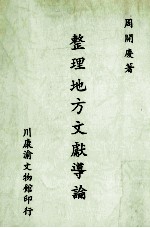 周開慶著
整理地方文獻導論
川康渝文物館印行